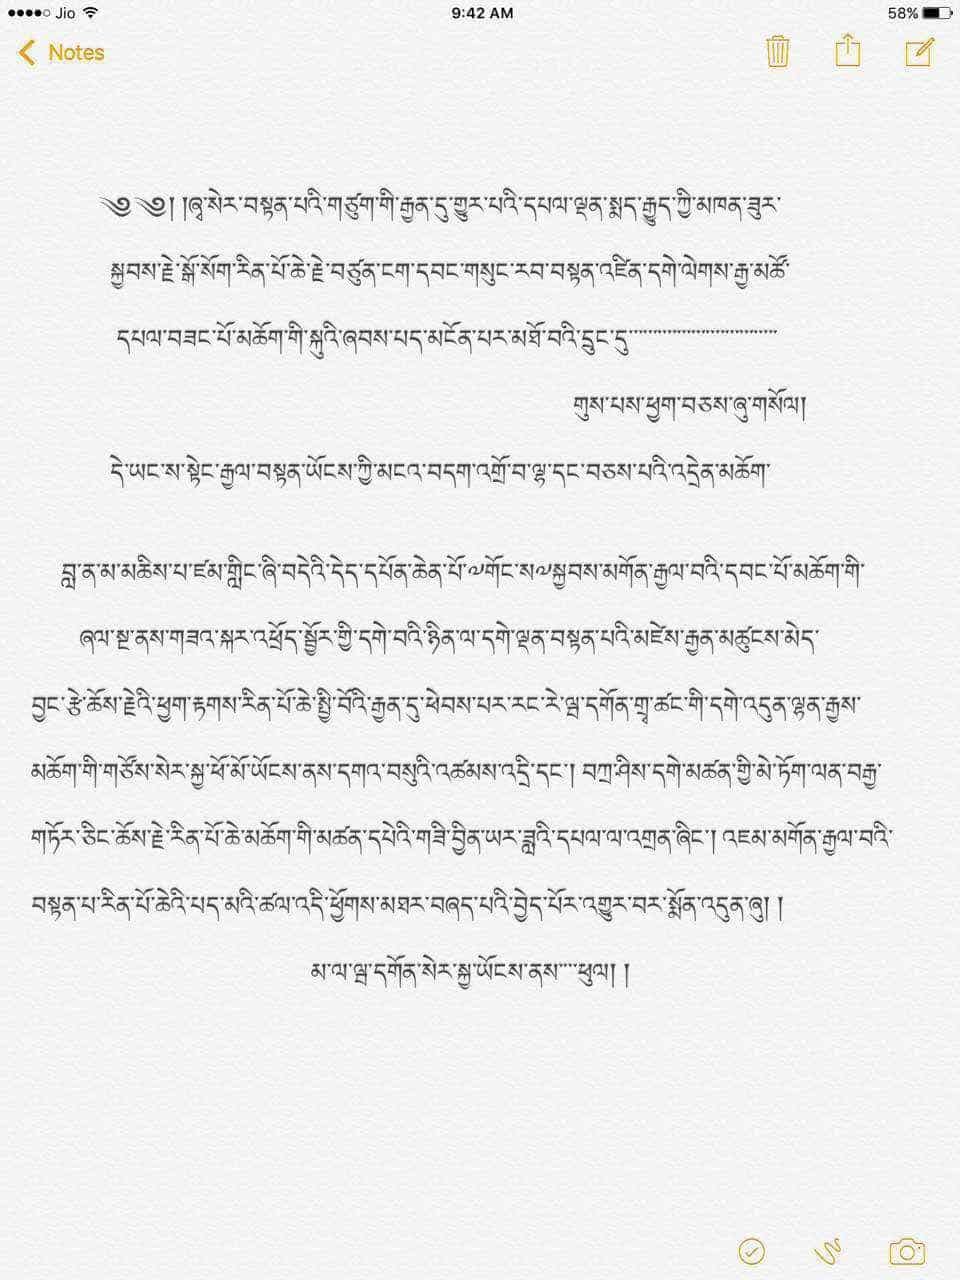 ●●●●○ Jio 9:42 AM 58%
Notes
༄༅། །ཞྭ་སེར་བསྟན་པའི་གཙུག་གི་རྒྱན་དུ་གྱུར་པའི་དཔལ་ལྡན་སྨད་རྒྱུད་ཀྱི་མཁན་ཟུར་
སྐྱབས་རྗེ་སྒོ་སོག་རིན་པོ་ཆེ་རྗེ་བཙུན་ངག་དབང་གསུང་རབ་བསྟན་འཛིན་དགེ་ལེགས་རྒྱ་མཚོ་
དཔལ་བཟང་པོ་མཆོག་གི་སྐུའི་ཞབས་པད་མངོན་པར་མཐོ་བའི་དྲུང་དུ་་་་་་་་་་་་་་་་་་་་་་་་་་་་་
གུས་པས་ཕྱག་བཅས་ཞུ་གསོལ།
དེ་ཡང་ས་སྟེང་རྒྱལ་བསྟན་ཡོངས་ཀྱི་མངའ་བདག་འགྲོ་བ་ལྷ་དང་བཅས་པའི་འདྲེན་མཆོག་
བླ་ན་མ་མཆིས་པ་ཛམ་གླིང་ཞི་བདེའི་དེད་དཔོན་ཆེན་པོ་༧གོང་ས་༧སྐྱབས་མགོན་རྒྱལ་བའི་དབང་པོ་མཆོག་གི་
ཞལ་སྔ་ནས་གཟའ་སྐར་འཕྲོད་སྦྱོར་གྱི་དགེ་བའི་ཉིན་ལ་དགེ་ལྡན་བསྟན་པའི་མཛེས་རྒྱན་མཚུངས་མེད་
བྱང་རྩེ་ཆོས་རྗེའི་ཕྱག་རྟགས་རིན་པོ་ཆེ་སྤྱི་བོའི་རྒྱན་དུ་ཕེབས་པར་རང་རེ་ལྦ་དགོན་གྲྭ་ཚང་གི་དགེ་འདུན་ལྷན་རྒྱས་
མཆོག་གི་གཙོས་སེར་སྐྱ་ཕོ་མོ་ཡོངས་ནས་དགའ་བསུའི་འཚམས་འདྲི་དང་། བཀྲ་ཤིས་དགེ་མཚན་གྱི་མེ་ཏོག་ལན་བརྒྱ་
གཏོར་ཅིང་ཆོས་རྗེ་རིན་པོ་ཆེ་མཆོག་གི་མཚན་དཔེའི་གཟི་བྱིན་ཡར་ཟླའི་དཔལ་ལ་འགྲན་ཞིང་། འཇམ་མགོན་རྒྱལ་བའི་
བསྟན་པ་རིན་པོ་ཆེའི་པད་མའི་ཚལ་འདི་ཕྱོགས་མཐར་བཞད་པའི་བྱེད་པོར་འགྱུར་བར་སྨོན་འདུན་ཞུ། །
མ་ལ་ལྦ་དགོན་སེར་སྐྱ་ཡོངས་ནས་་་་ཕུལ། །